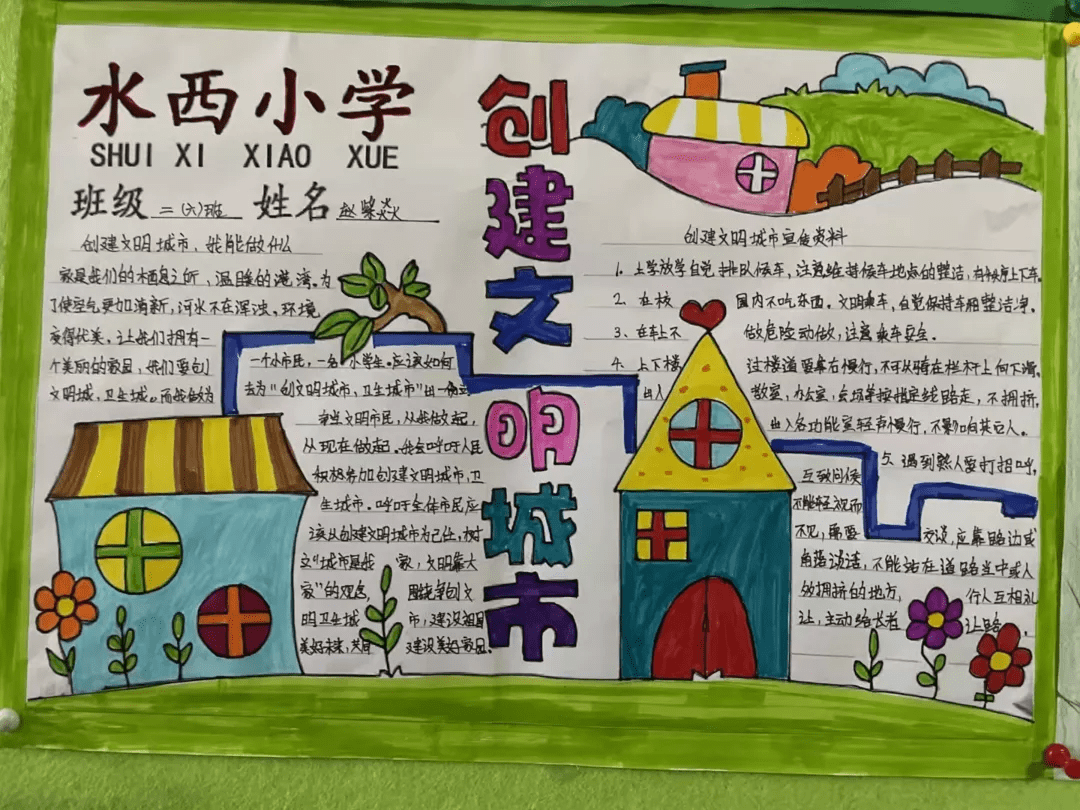 水西小学
SHUI XI XIAO XUE
班级 二(六)班 姓名 赵
创建文明城市，我能做什么
家是我们的栖息之所，温暖的港湾。为
了使空气更加清新，河水不在浑浊，环境
变得优美，让我们拥有一
个美丽的家园，我们要创
文明城，卫生城。而我做为
一个小市民，一名小学生。应该如何
去为“创文明城市，卫生城市”出一份
文明市民，从我做起，
从现在做起。我会呼吁人民
积极参加创建文明城市，卫
生城市。呼吁全体市民应
该从创建文明城市为己任，树
立“城市是我家，文明靠大
家”的观念，围绕争创文
明卫生城市，建设祖国
美好未来，共同建设美好家园。
创建文明城市
创建文明城市宣传资料
1. 上学放学自觉排队候车，注意维持候车地点的整洁，有秩序上下车。
2、在校园内不吃东西。文明乘车，自觉保持车厢整洁净。
3、在车上不做危险动做，注意乘车安全。
4. 上下楼过楼道要靠右慢行，不可以骑在栏杆上向下滑。
出入教室，办公室，会场等按指定线路走，不拥挤。
出入各功能室轻声慢行，不影响其它人。
5. 遇到熟人要打招呼，
互致问候
不能轻视而
不见，需要交谈，应靠路边或
角落谈话，不能站在道路当中或人
多拥挤的地方，行人互相礼
让，主动给长者让路。